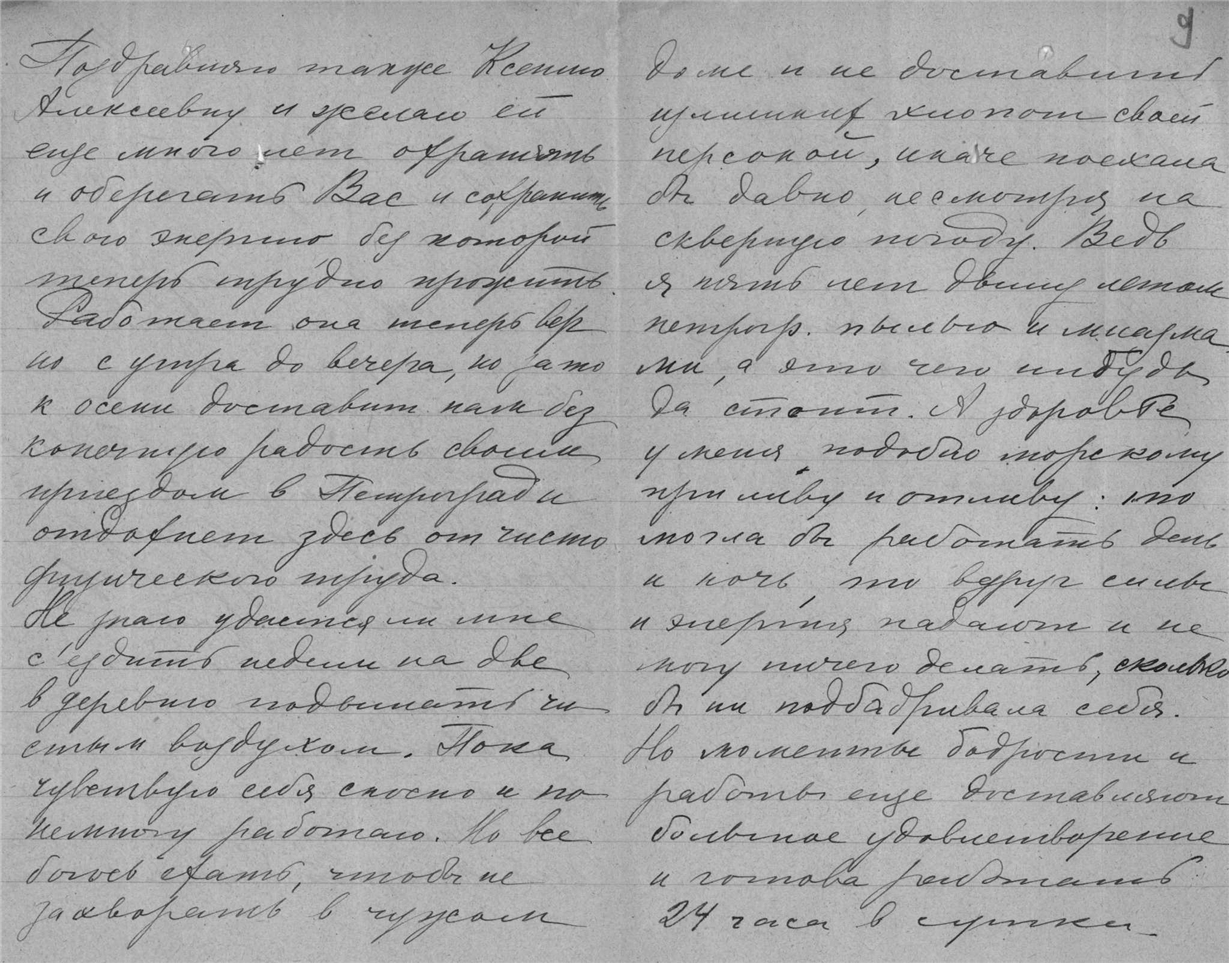 9
Поздравляю также Ксению
Алексеевну и желаю ей
еще много лет охранять
и оберегать Вас и сохранить
свою энергию без которой
теперь трудно прожить.
Работает она теперь вер
но с утра до вечера, но зато
к осени доставит нам без
конечную радость своим
приездом в Петроград и
отдохнет здесь от чисто
физического труда.
Не знаю удастся ли мне
с'ездить недели на две
в деревню подышать чи
стым воздухом. Пока
чувствую себя сносно и по
немногу работаю. Но все
боюсь ехать, чтобы не
захворать в чужом
доме и не доставить
излишних хлопот своей
персоной, иначе поехала
бы давно, несмотря на
скверную погоду. Ведь
я пять лет дышу летом
петрогр. пылью и миазма
ми, а это чего нибудь
да стоит. А здоровье
у меня подобно морскому
приливу и отливу: то
могла бы работать день
и ночь, то вдруг силы
и энергия падают и не
могу ничего делать, сколько
бы ни подбадривала себя.
Но моменты бодрости и
работы еще доставляют
большое удовлетворение
и готова работать
24 часа в сутки